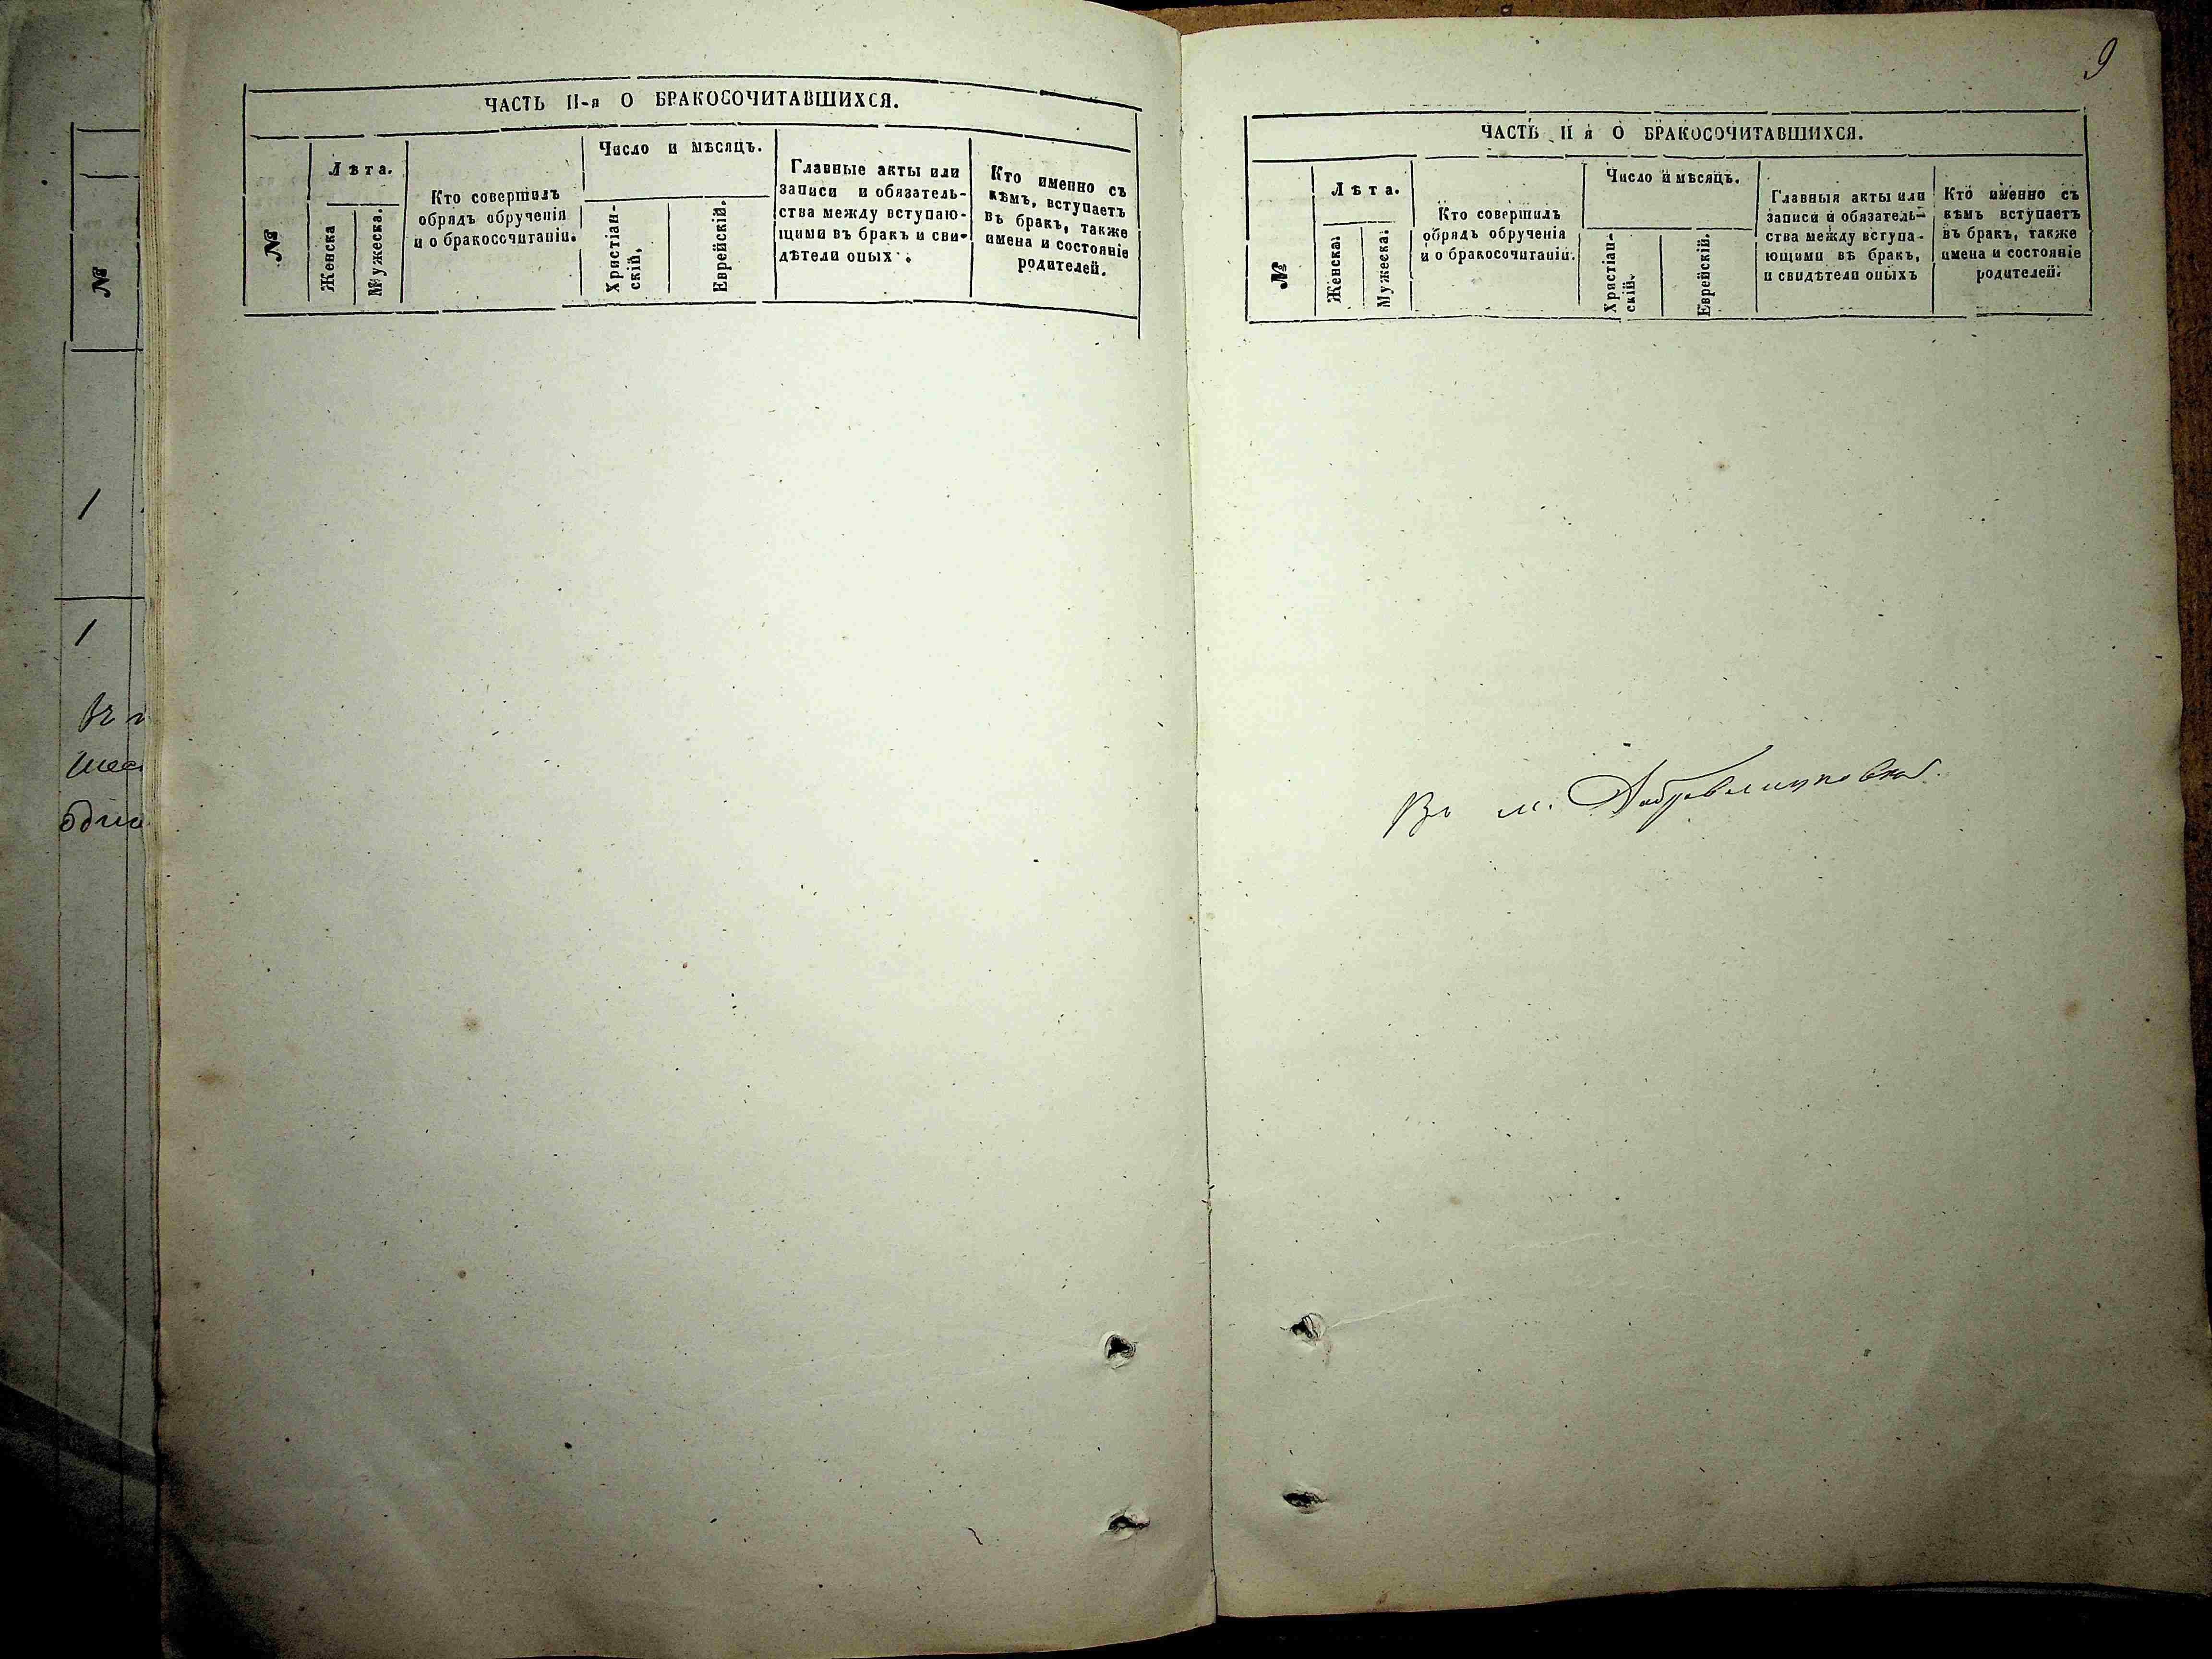 №
1
1
ЧАСТЬ II-я О БРАКОСОЧИТАВШИХСЯ.
№
Лѣта.
Женска
Мужеска.
Кто совершилъ
обрядъ обрученія
и о бракосочитаніи.
Число и мѣсяцъ.
Христіан-
скій,
Еврейскій.
Главные акты или
записи и обязатель-
ства между вступаю-
щими въ бракъ и сви-
дѣтели оныхъ.
Кто именно съ
кѣмъ, вступаетъ
въ бракъ, также
имена и состояніе
родителей.
9
ЧАСТЬ II я О БРАКОСОЧИТАВШИХСЯ.
№
Лѣта.
Женска.
Мужеска.
Кто совершилъ
обрядъ обрученія
и о бракосочитаніи.
Число и мѣсяцъ.
Христіан-
скій.
Еврейскій.
Главныя акты или
записи и обязатель-
ства между вступа-
ющими въ бракъ,
и свидѣтели оныхъ
Кто именно съ
кѣмъ вступаетъ
въ бракъ, также
имена и состояніе
родителей.
Въ м.